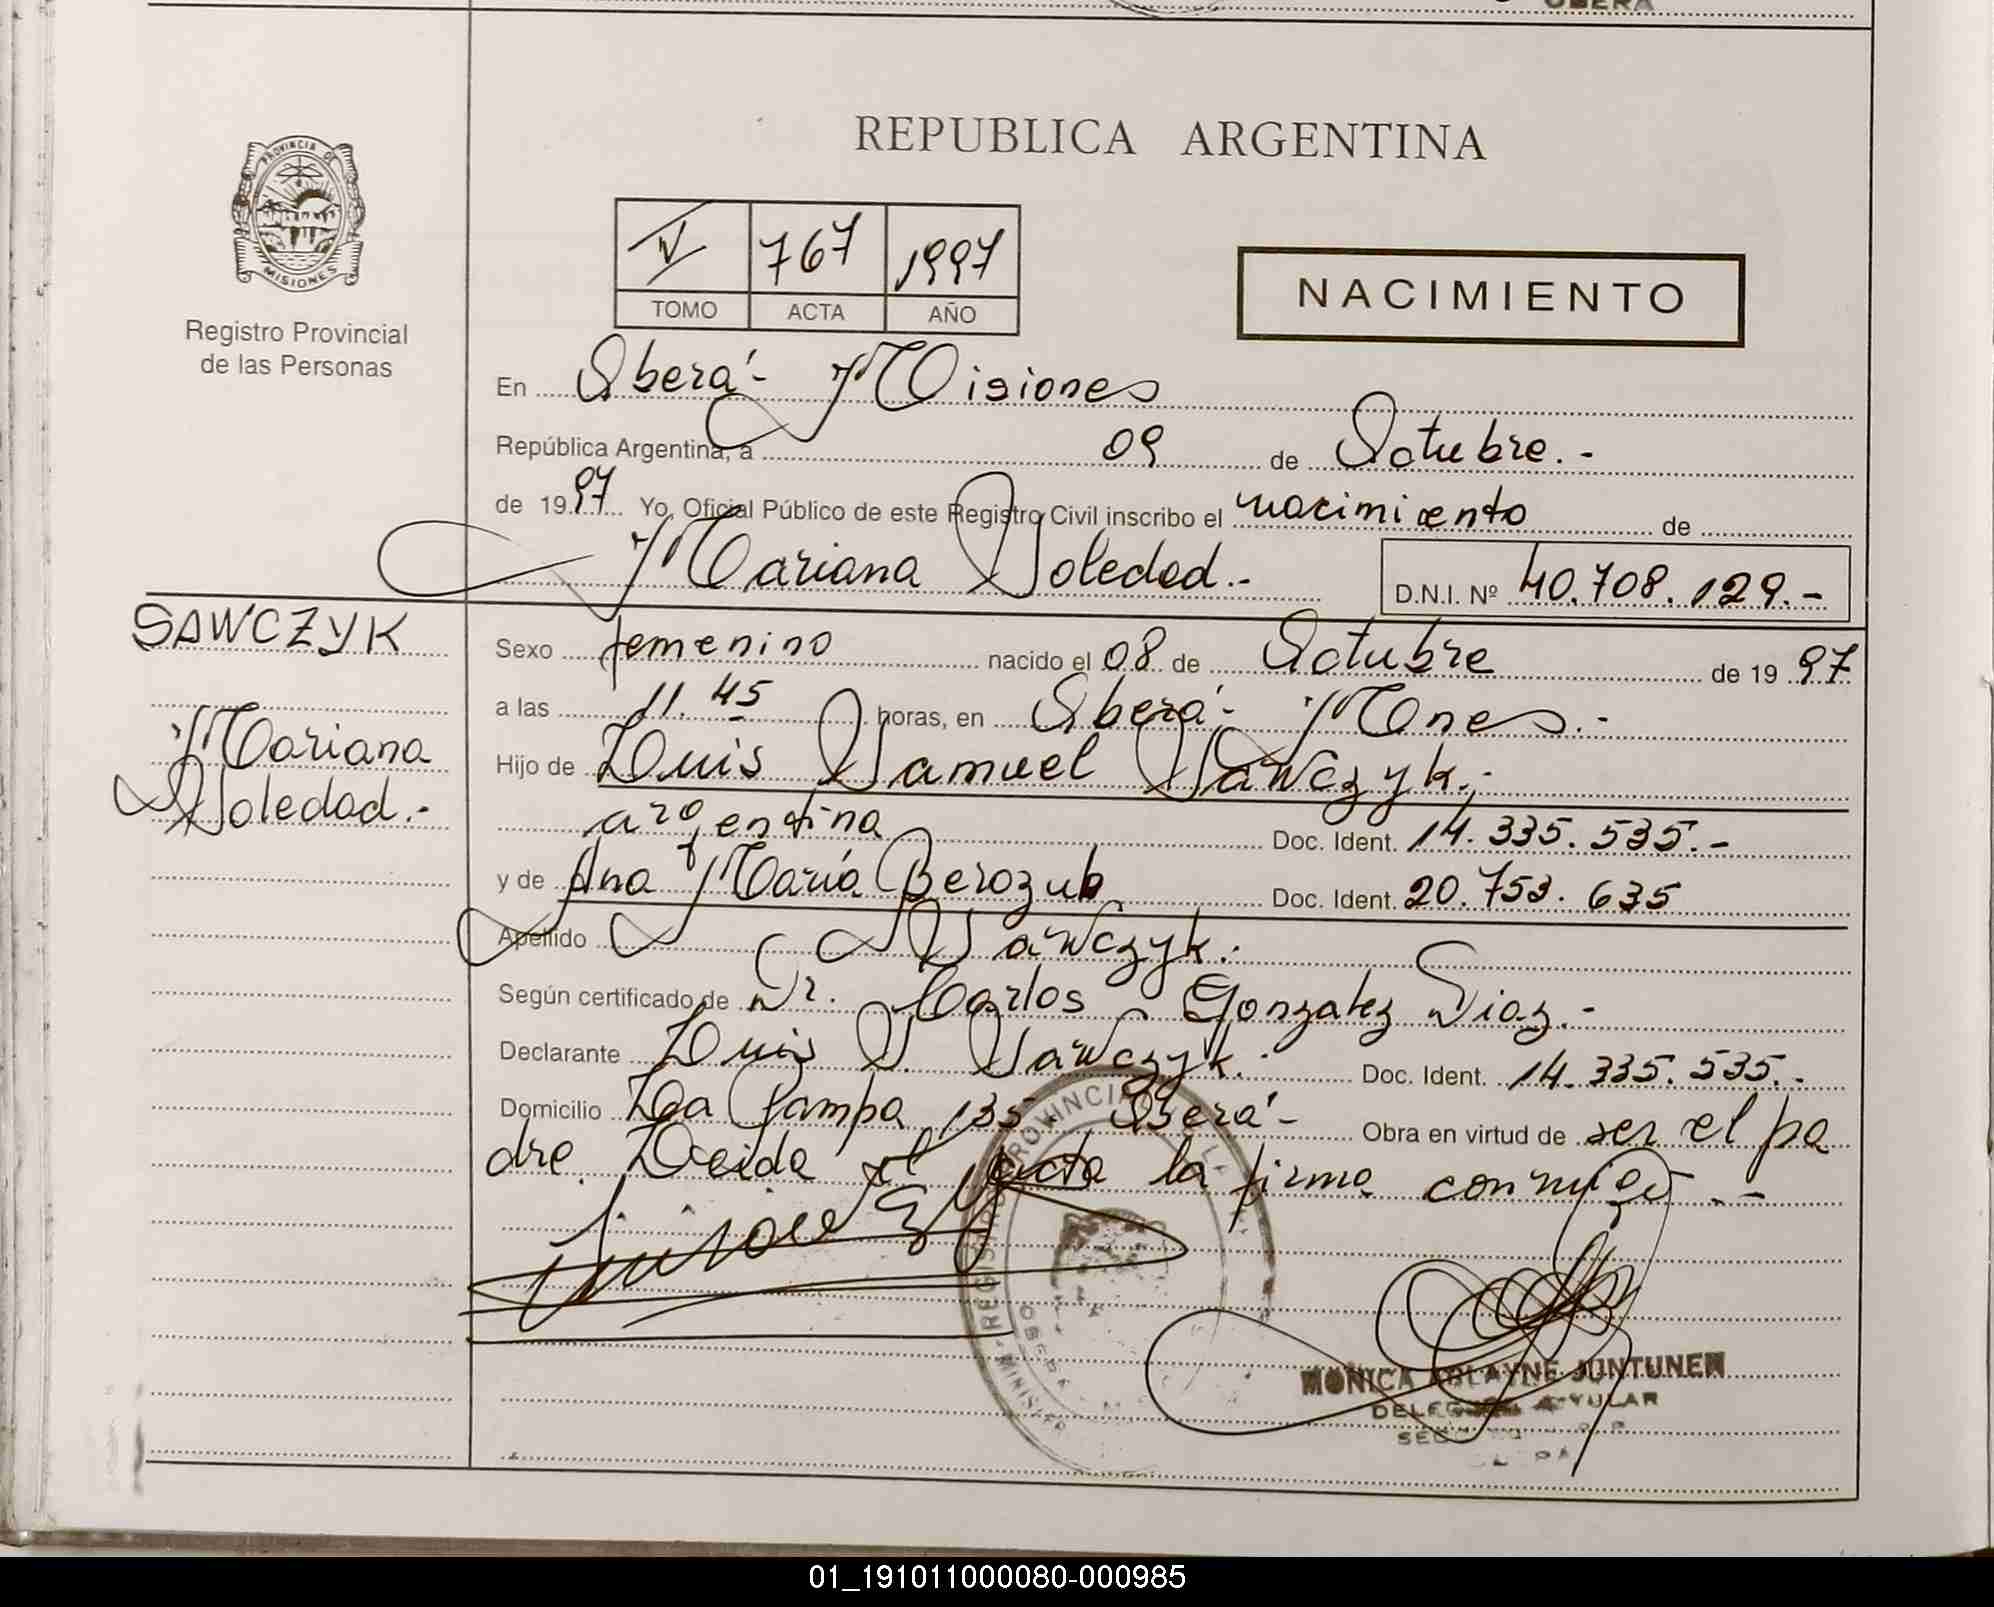 OBERA
REPUBLICA ARGENTINA
PROVINCIA DE
MISIONES
Registro Provincial
de las Personas
IV 767 1997
TOMO ACTA AÑO
NACIMIENTO
En Oberá - Misiones
República Argentina, a 09 de Octubre.-
de 1997 Yo, Oficial Público de este Registro Civil inscribo el nacimiento de
Mariana Soledad.-
D.N.I. Nº 40.708.129.-
SAWCZYK
Mariana
Soledad.-
Sexo femenino nacido el 08 de Octubre de 1997
a las 11.45 horas, en Oberá - Mnes.-
Hijo de Luis Samuel Sawczyk.-
argentina Doc. Ident. 14.335.535.-
y de Ana María Berozub Doc. Ident. 20.753.635
Apellido Sawczyk.-
Según certificado de Dr. Carlos Gonzalez Diaz.-
Declarante Luis S. Sawczyk. Doc. Ident. 14.335.535.-
Domicilio La Pampa 135 Oberá - Obra en virtud de ser el pa
dre. Leida el acta la firma conmigo.-
MONICA JUNTUNEN
01_191011000080-000985